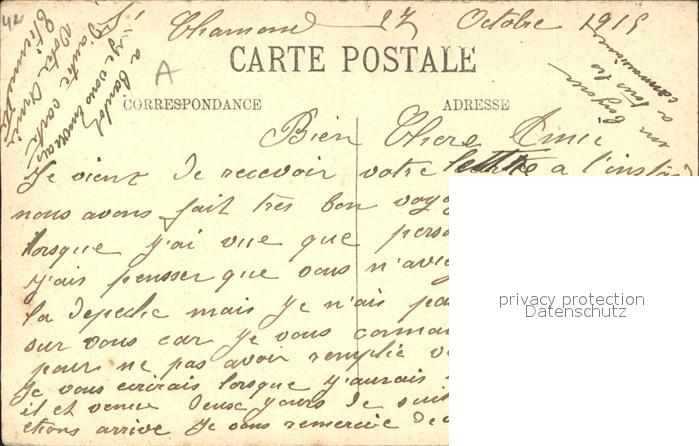 42
Chamond 27 Octobre 1915
CARTE POSTALE
A
CORRESPONDANCE
ADRESSE
Bien Chere Amie
Je viens de recevoir votre lettre a l'instant
nous avons fait tres bon voya
lorsque j'ai vue que perso
j'ais pensser que vous n'avie
la depeche mais je n'ais pa
sur vous car je vous connai
pour ne pas avoir remplie v
Je vous ecrirais lorsque j'aurais
il et venue deux jours de suit
etions arrive je vous remercie de
a tous les
votre Amie
d'autre carte
je vous enverrais
privacy protection
Datenschutz